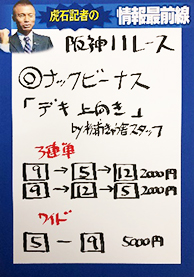 虎石記者の
情報最前線
阪神11レース
◎ナックビーナス
「デキ上向き」
by杉浦きゅう舎スタッフ
3連単
9→5→12 2000円
9→12→5 2000円
ワイド
5－9 5000円